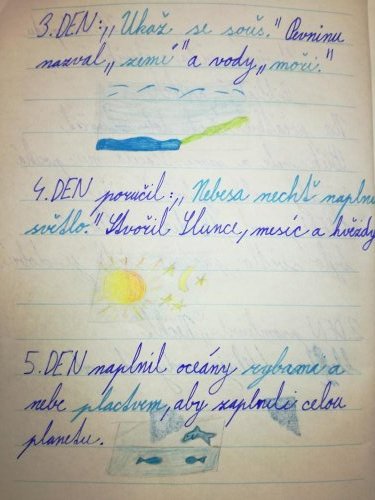 3. DEN: „Ukaž se souš." Pevninu
nazval „zemé" a vody „moři."
4. DEN poručil: „Nebesa nechť naplní
světlo." Stvořil Slunce, mesíc a hvězdy
5. DEN naplnil oceány rybama a
nebe ptactvem, aby zaplnili celou
planetu.